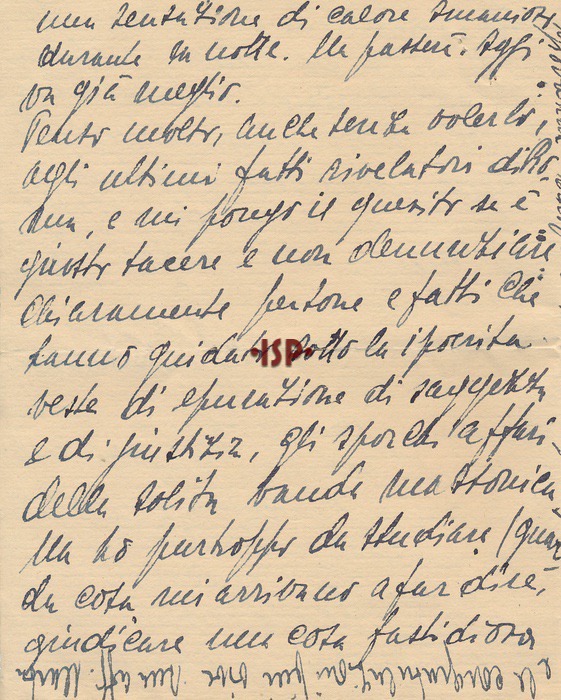 una sensazione di calore smanioso
durante la notte. Ma passerà. Oggi
va già meglio.
Penso molto, anche senza volerlo,
agli ultimi fatti rivelatori di Ro-
ma, e mi pongo il quesito se è
giusto tacere e non denunziare
chiaramente persone e fatti che
hanno guidato sotto la ipocrita
•ISP•
veste di epurazione di saggezza
e di giustizia, gli sporchi affari
della solita banda massonica.
Ma ho purtroppo da studiare (guar-
da cosa mi arrivano a far dire,
giudicare una cosa fastidiosa